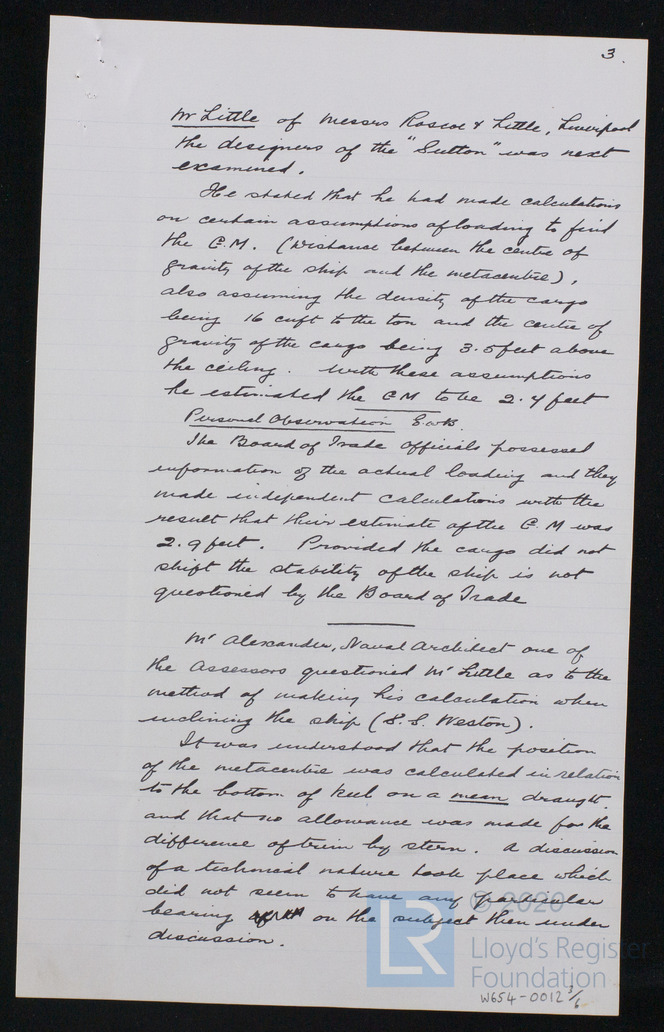 3.
Mr Little of Messrs Roscoe & Little, Liverpool
the designers of the "Sutton" was next
examined.
He stated that he had made calculations
on certain assumptions of loading to find
the G.M. (Distance between the centre of
gravity of the ship and the metacentre),
also assuming the density of the cargo
being 16 cuft to the ton and the centre of
gravity of the cargo being 3.5 feet above
the ceiling. With these assumptions
he estimated the GM to be 2.4 feet
Personal Observation
The Board of Trade officials possessed
information of the actual loading and they
made independent calculations with the
result that their estimate of the G.M was
2.9 feet. Provided the cargo did not
shift the stability of the ship is not
questioned by the Board of Trade
Mr Alexander, Naval Architect one of
the Assessors questioned Mr Little as to the
method of making his calculation when
inclining the ship (S.S. Weston).
It was understood that the position
of the metacentre was calculated in relation
to the bottom of keel on a mean draught.
and that no allowance was made for the
difference of trim by stern. A discussion
of a technical nature took place which
did not seem to have any particular
bearing on the subject then under
discussion.
© 2020
LR
Lloyd's Register
Foundation
W654-0012 3/6